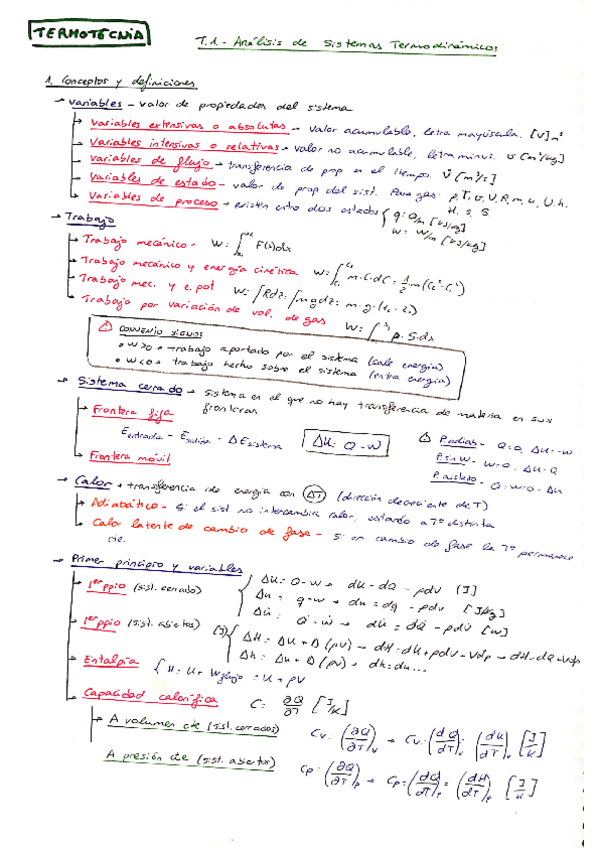 TERMOTECNIA
T.1.- Análisis de Sistemas Termodinámicos
1. Conceptos y definiciones
→ Variables - valor de propiedades del sistema
→ Variables extensivas o absolutas → valor acumulable, letra mayúscula. [V] m³
→ Variables intensivas o relativas → valor no acumulable, letra minus. v [m³/kg]
→ Variables de flujo → transferencia de prop en el tiempo. V̇ [m³/s]
→ Variables de estado - valor de prop del sist. Para gas: p, T, v, V, R, m, u, U, h, H, s, S
→ Variables de proceso → existen entre dos estados { q: Q/m [kJ/kg]
w = W/m [kJ/kg]
→ Trabajo
→ Trabajo mecánico - W = ∫ F(x)dx
→ Trabajo mecánico y energía cinética W = ∫ m·C·dC = 1/2 m(C₂²-C₁²)
→ Trabajo mec. y e. pot W = ∫Rdz = ∫mgdz = m·g·(z₂-z₁)
→ Trabajo por variación de vol. de gas W = ∫ p·S·dx
⚠ CONVENIO SIGNOS
• W>0 → trabajo aportado por el sistema (sale energía)
• W<0 → trabajo hecho sobre el sistema (entra energía)
→ Sistema cerrado → sistema en el que no hay transferencia de materia en sus fronteras
→ Frontera fija
Eentrada - Esalida = ΔEsistema
ΔU = Q-W
⚠ P. adiab - Q=0, ΔU=-W
W=0, ΔU=Q
P. aislado - Q=W=0=ΔU
→ Frontera móvil
→ Calor → transferencia de energía con ΔT (dirección decreciente de T)
→ Adiabático - Si el sist no intercambia calor, estando a Tª distinta
→ Calor latente de cambio de fase - Si en cambio de fase la Tª permanece cte.
→ Primer principio y variables
→ 1er ppio (sist. cerrado) { ΔU = Q-W → dU = dQ - pdV (J)
Δu = q-w → du = dq - pdv [J/kg]
ΔU̇ = Q̇-Ẇ → dU̇ = dQ̇ - pdV̇ [W]
→ 1er ppio (sist. abiertos) [J] { ΔH = ΔU + Δ(pV) → dH = dU + pdV + Vdp → dH = dQ + Vdp
Δh = Δu + Δ(pv) → dh = du...
→ Entalpía { H = U + Wflujo = U + pV
→ Capacidad calorífica C = ∂Q/∂T [J/K]
→ A volumen cte (sist. cerrados) Cv = (∂Q/∂T)v → Cv = (dQ/dT)v = (dU/dT)v [J/K]
A presión cte (sist. abiertos) Cp = (∂Q/∂T)p → Cp = (dQ/dT)p = (dH/dT)p [J/K]